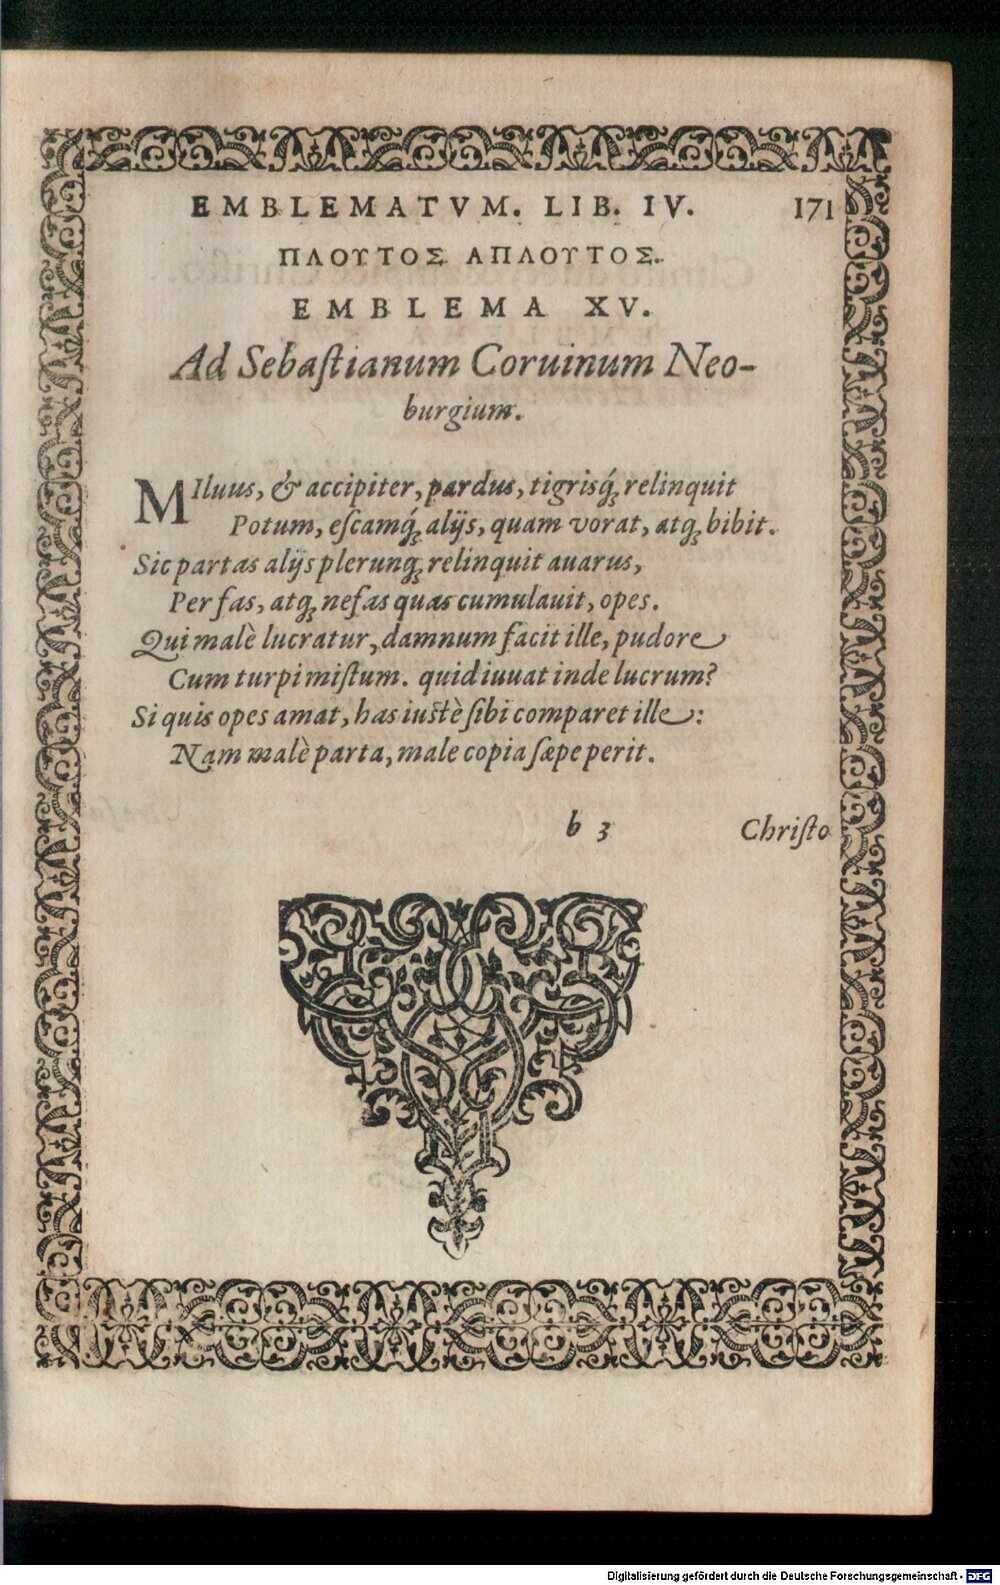 EMBLEMATVM. LIB. IV. 171
ΠΛΟΥΤΟΣ ΑΠΛΟΥΤΟΣ.
EMBLEMA XV.
Ad Sebaſtianum Coruinum Neo-
burgium.
MIluus, & accipiter, pardus, tigrisq́ꝫ relinquit
Potum, eſcamq́ꝫ alijs, quam vorat, atqꝫ bibit.
Sic partas alijs plerunqꝫ relinquit auarus,
Per fas, atqꝫ nefas quas cumulauit, opes.
Qui malè lucratur, damnum facit ille, pudore
Cum turpi miſtum. quid iuuat inde lucrum?
Si quis opes amat, has iustè ſibi comparet ille:
Nam malè parta, male copia ſæpe perit.
b 3 Chriſto
Digitalisierung gefördert durch die Deutsche Forschungsgemeinschaft - DFG